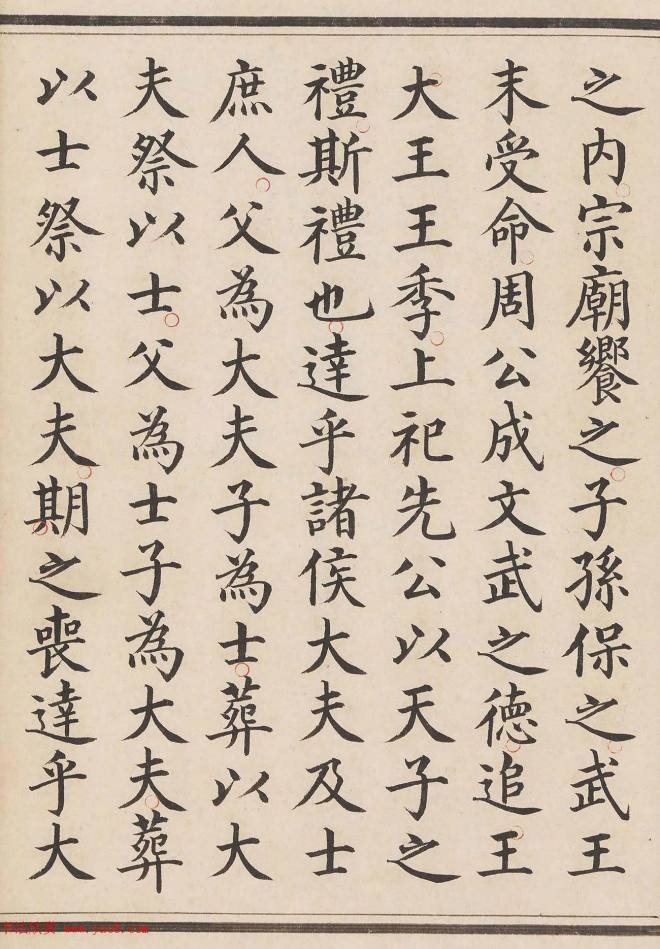 之内宗廟饗之子孫保之武王
末受命周公成文武之德追王
大王王季上祀先公以天子之
禮斯禮也達乎諸侯大夫及士
庶人父為大夫子為士葬以大
夫祭以士父為士子為大夫葬
以士祭以大夫期之喪達乎大